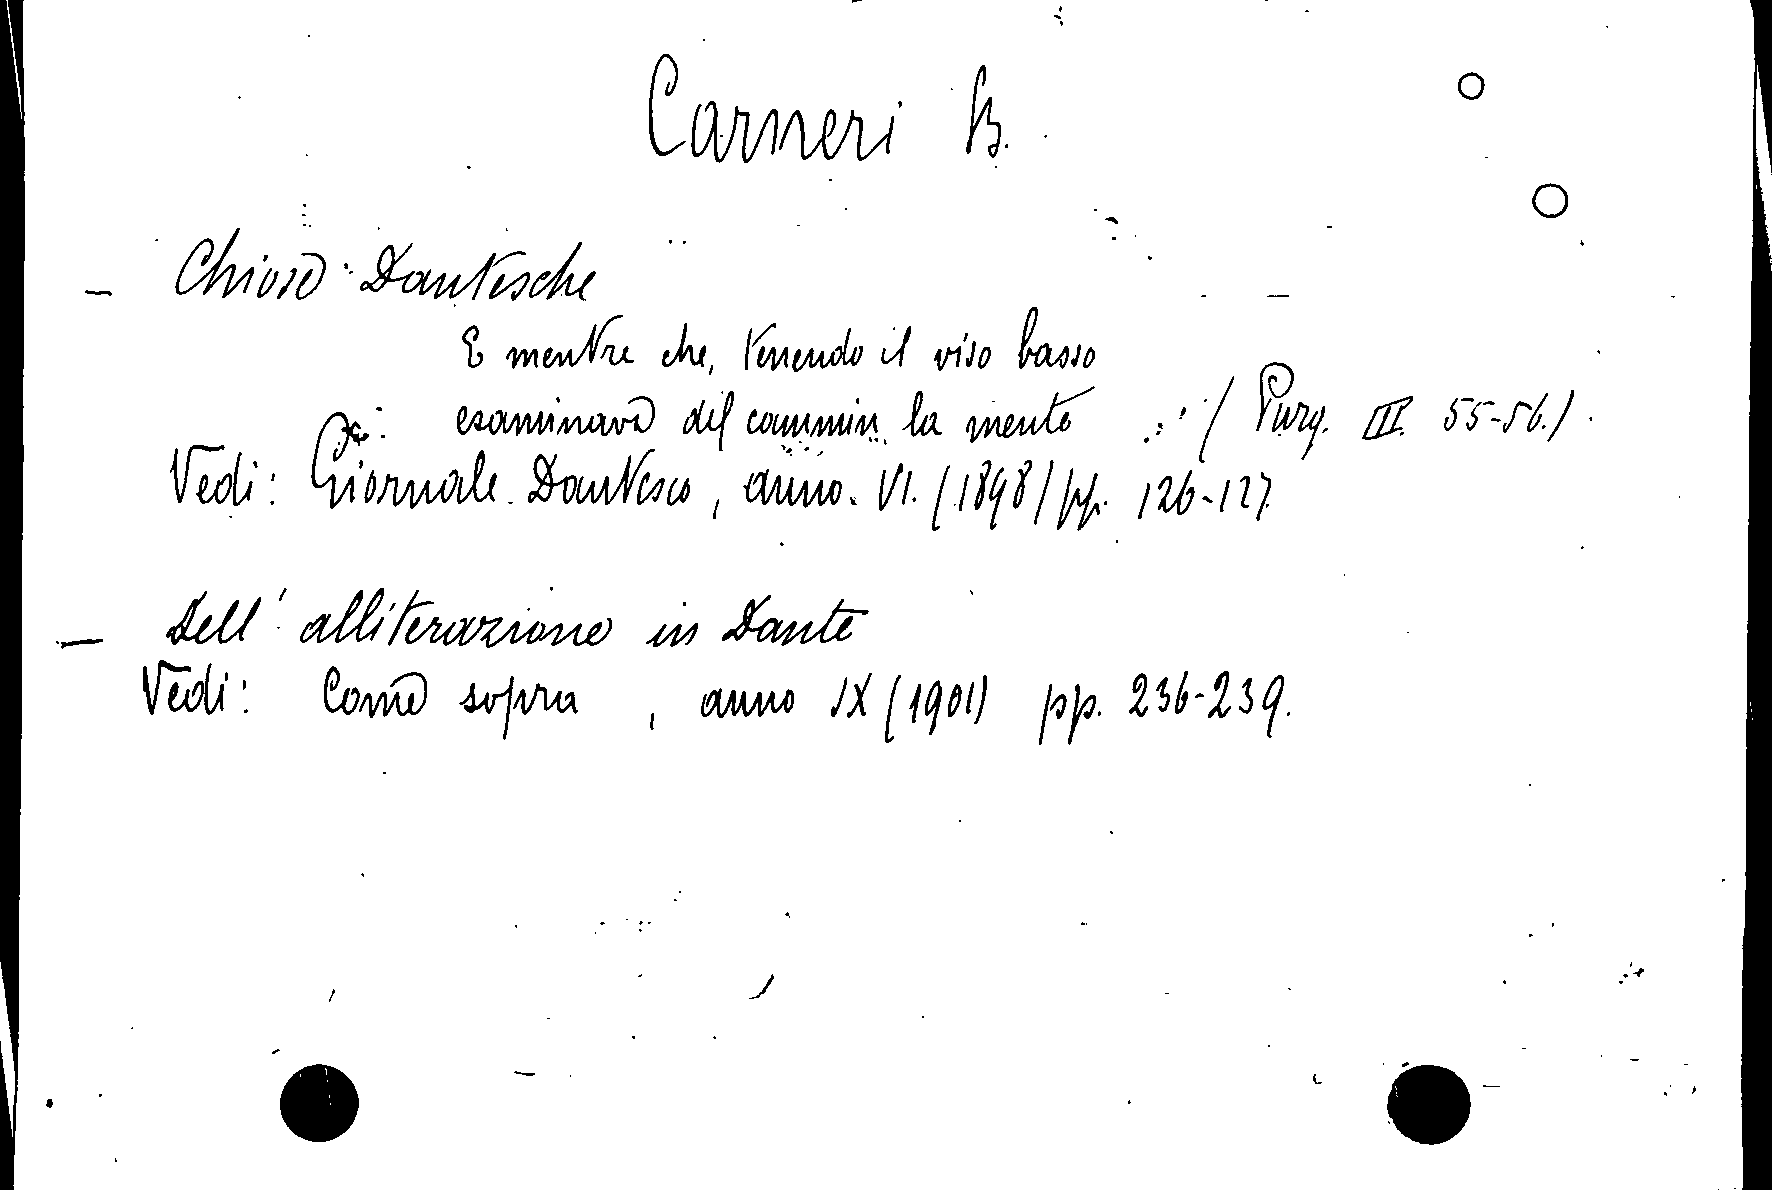 Carneri B.
- Chiose Dantesche
E mentre che, tenendo il viso basso
esaminava del cammin la mente (Purg. III. 55-56.).
Vedi: Giornale Dantesco, anno VI. (1898) pp. 126-127.
- Dell' alliterazione in Dante
Vedi: Come sopra, anno IX (1901) pp. 236-239.